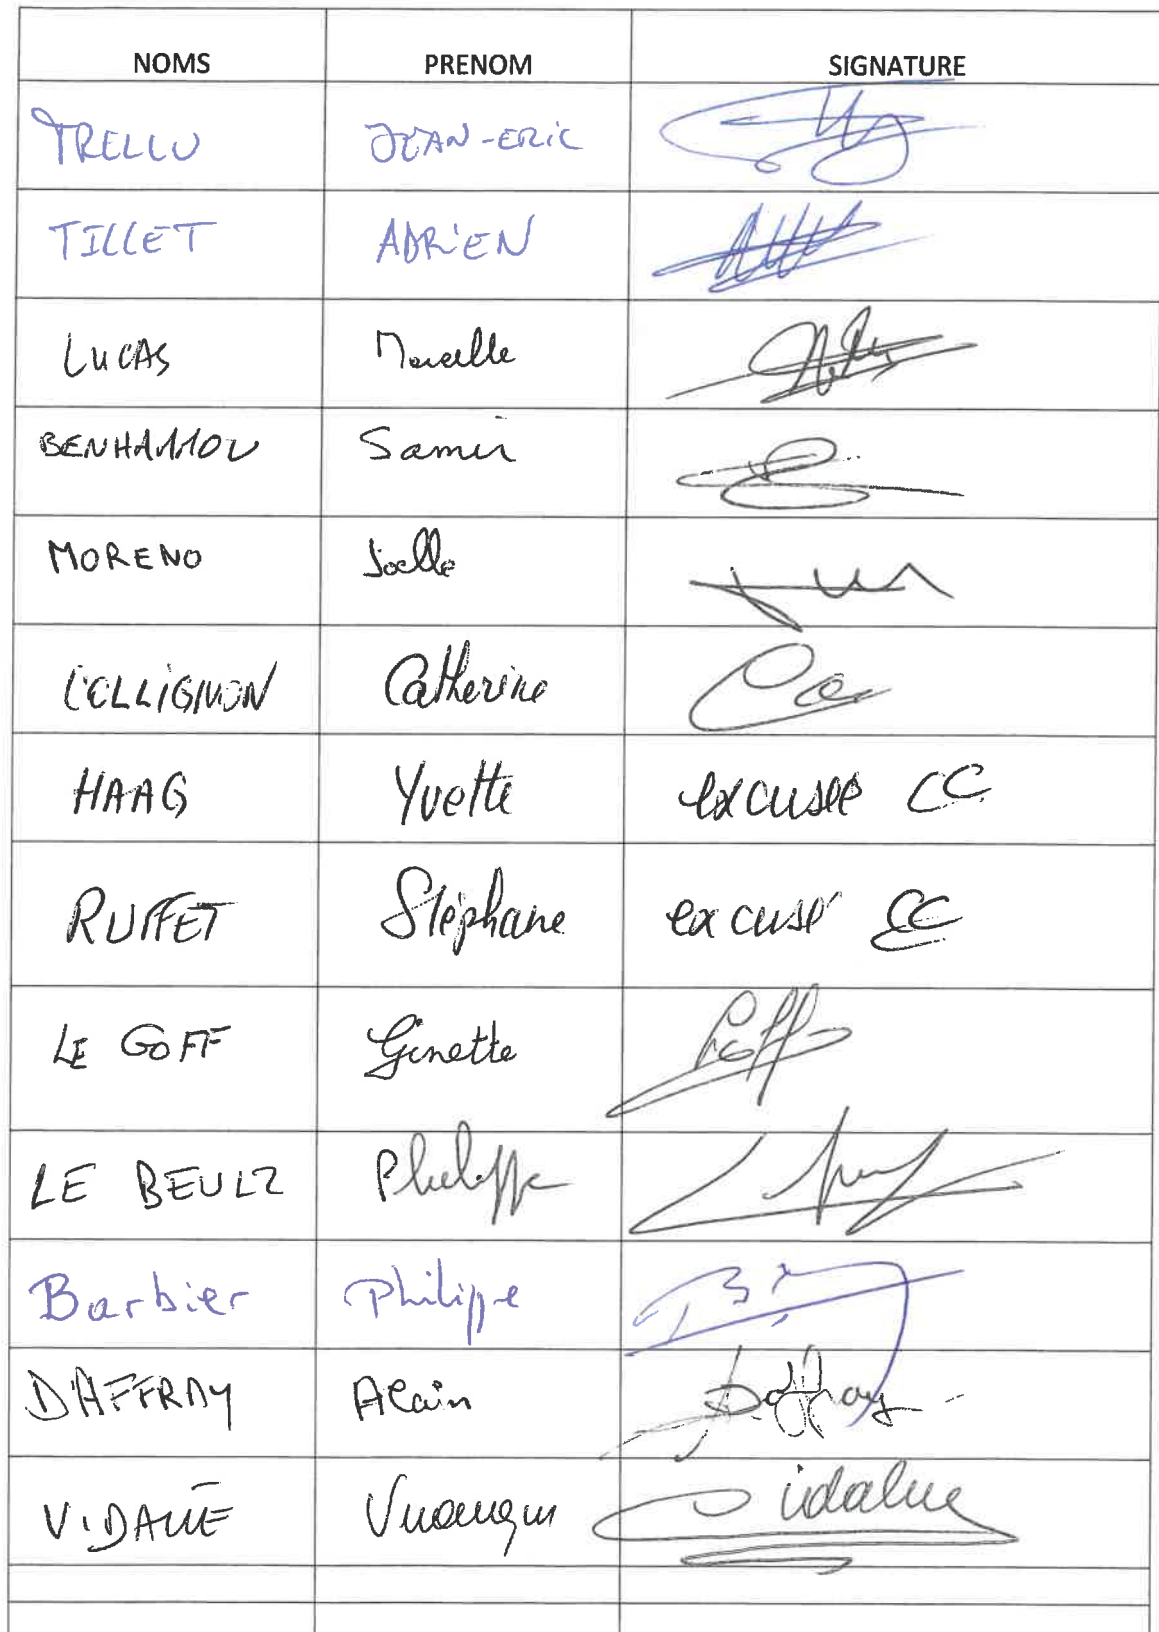 NOMS PRENOM SIGNATURE
TRELLU JEAN-ERIC
TILLET ADRIEN
LUCAS Marcelle
BENHAMOU Samir
MORENO Joelle
COLLIGNON Catherine
HAAG Yvette excusée CC
RUFFET Stéphane excusé CC
LE GOFF Ginette Goff
LE BEULZ Philippe
Barbier Philippe
D'AFFRAY Alain Daffray